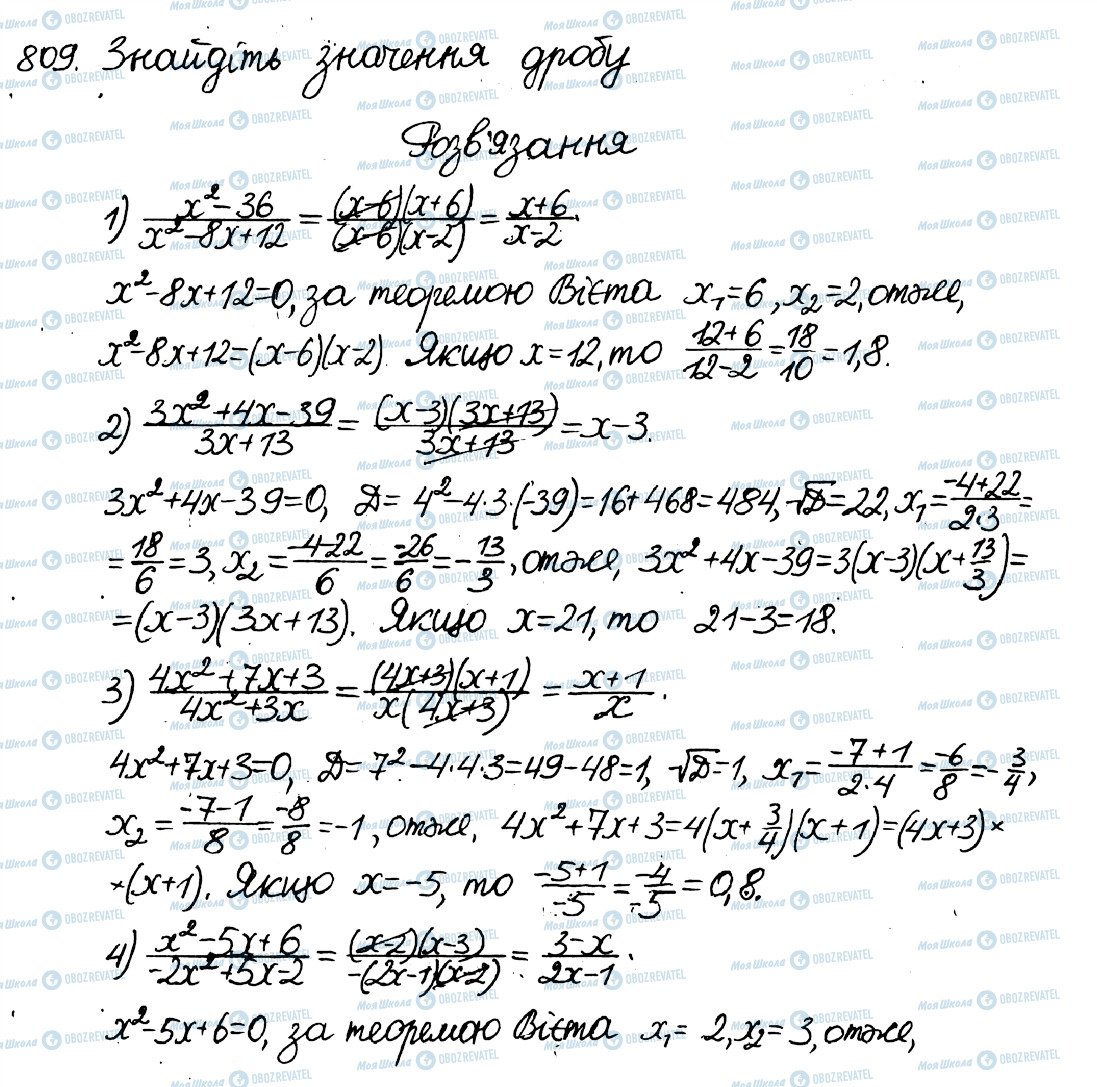 809. Знайдіть значення дробу
Розв'язання
1) (x²-36)/(x²-8x+12) = ((x-6)(x+6))/((x-6)(x-2)) = (x+6)/(x-2).
x²-8x+12=0, за теоремою Вієта x₁=6, x₂=2, отже,
x²-8x+12=(x-6)(x-2). Якщо x=12, то (12+6)/(12-2)=18/10=1,8.
2) (3x²+4x-39)/(3x+13) = ((x-3)(3x+13))/(3x+13) = x-3.
3x²+4x-39=0, D=4²-4·3·(-39)=16+468=484, √D=22, x₁=(-4+22)/(2·3)=
=18/6=3, x₂=(-4-22)/6=-26/6=-13/3, отже, 3x²+4x-39=3(x-3)(x+13/3)=
=(x-3)(3x+13). Якщо x=21, то 21-3=18.
3) (4x²+7x+3)/(4x²+3x) = ((4x+3)(x+1))/(x(4x+3)) = (x+1)/x.
4x²+7x+3=0, D=7²-4·4·3=49-48=1, √D=1, x₁=(-7+1)/(2·4)=-6/8=-3/4,
x₂=(-7-1)/8=-8/8=-1, отже, 4x²+7x+3=4(x+3/4)(x+1)=(4x+3)×
×(x+1). Якщо x=-5, то (-5+1)/-5=-4/-5=0,8.
4) (x²-5x+6)/(-2x²+5x-2) = ((x-2)(x-3))/(-(2x-1)(x-2)) = (3-x)/(2x-1).
x²-5x+6=0, за теоремою Вієта x₁=2, x₂=3, отже,
Моя Школа OBOZREVATEL